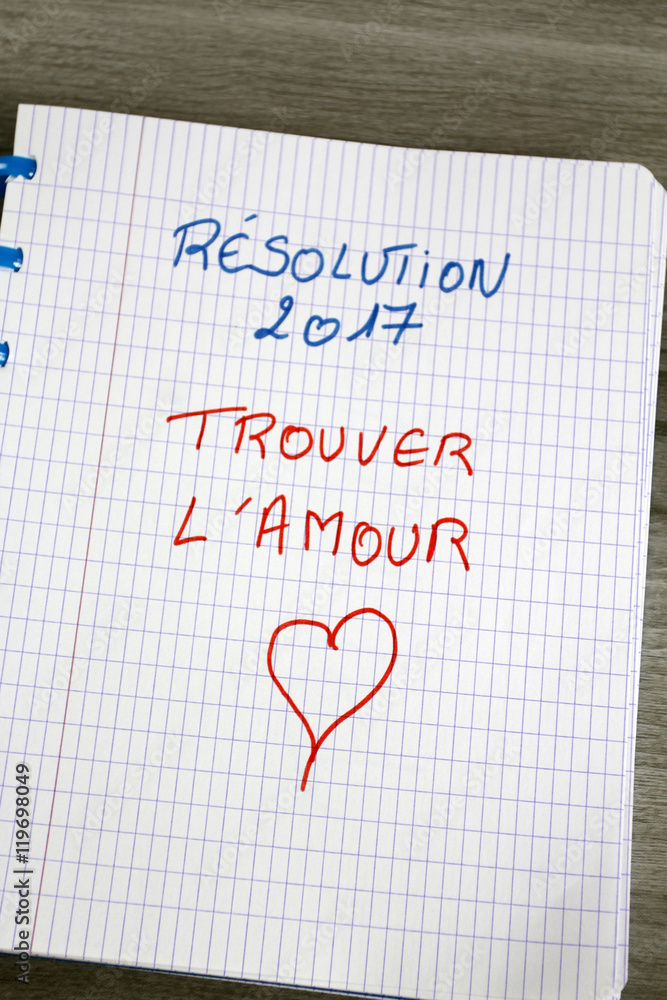 RÉSOLUTION
2017
TROUVER
L'AMOUR
Adobe Stock | #119698049